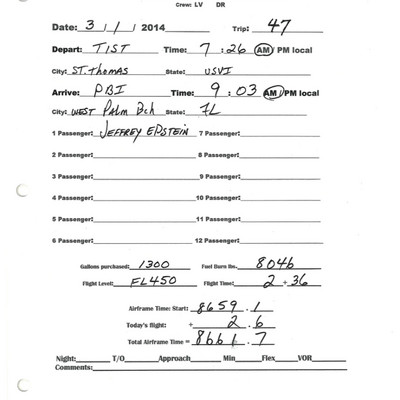 Crew: LV DR
Date: 3 / 1 / 2014 Trip: 47
Depart: TIST Time: 7 : 26 AM / PM local
City: ST. Thomas State: USVI
Arrive: PBI Time: 9 : 03 AM / PM local
City: WEST Palm Bch State: FL
1 Passenger: JEFFREY EPSTEIN 7 Passenger:
2 Passenger: 8 Passenger:
3 Passenger: 9 Passenger:
4 Passenger: 10 Passenger:
5 Passenger: 11 Passenger:
6 Passenger: 12 Passenger:
Gallons purchased: 1300 Fuel Burn lbs. 8046
Flight Level: FL450 Flight Time: 2 + 36
Airframe Time: Start: 8659 . 1
Today's flight: + 2 . 6
Total Airframe Time = 8661 . 7
Night: T/O Approach Min Flex VOR
Comments: